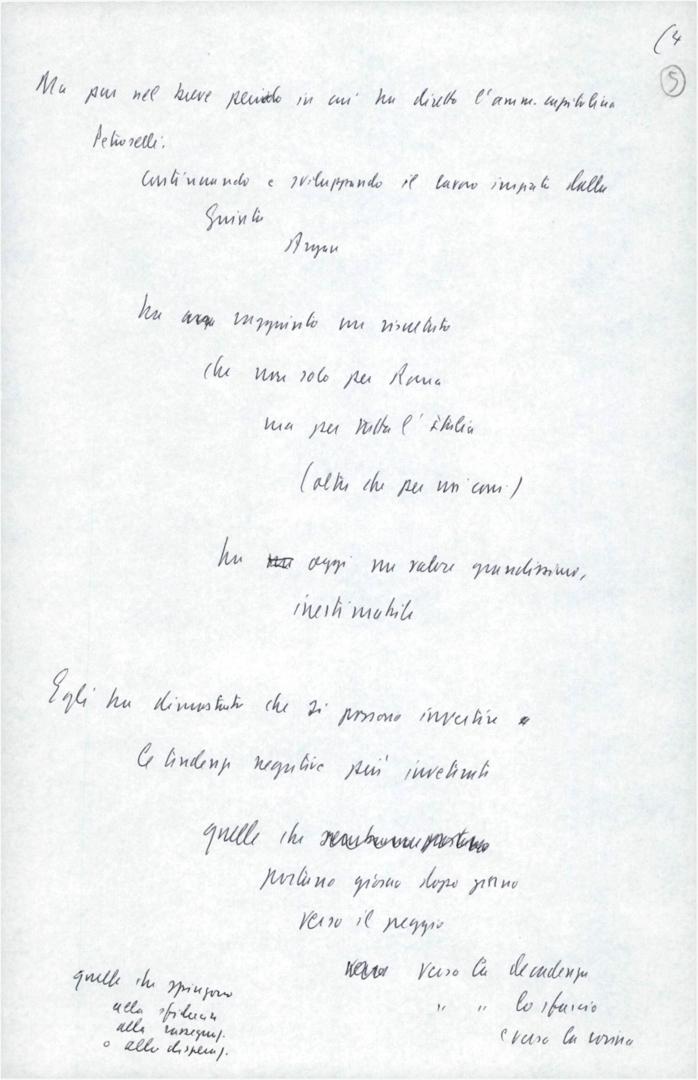 (4
5
Ma pur nel breve periodo in cui ha diretto l'amm. capitolina
Petroselli.
continuando e sviluppando il lavoro impost. dalla
Giunta
Argan
ha raggiunto un risultato
che non solo per Roma
ma per tutta l'Italia
(oltre che per noi com.)
ha oggi un valore grandissimo,
inestimabile
Egli ha dimostrato che si possono invertire
le tendenze negative più inveterate
quelle che
portano giorno dopo giorno
verso il peggio
verso la decadenza
" " lo sfascio
e verso la rovina
quelle che spingono
alla sfiducia
alla rassegnaz.
o alla disperaz.